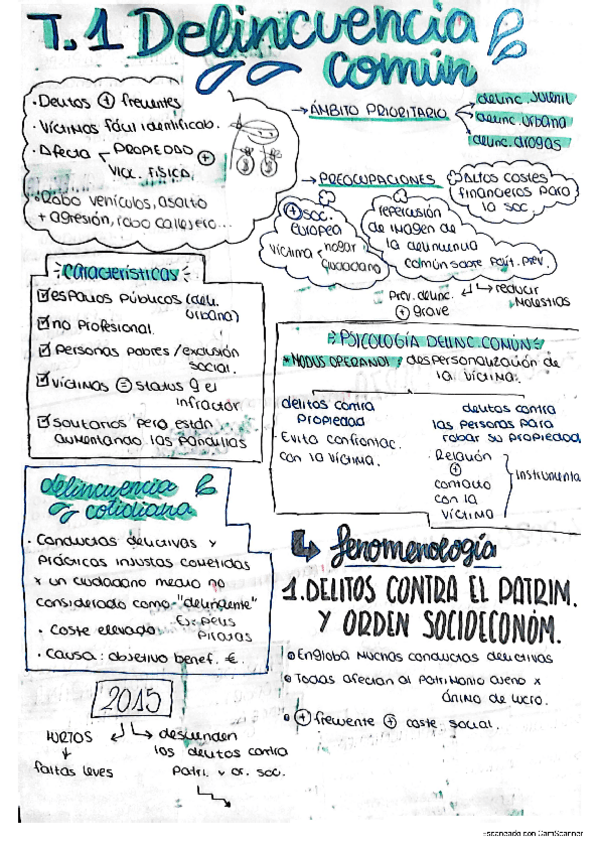 T.1 Delincuencia
común
· Delitos + frecuentes
· Víctimas fácil identificab.
· Afecta PROPIEDAD +
VIOL. FÍSICA.
· Robo vehículos, asalto
+ agresión, robo callejero...
→ ÁMBITO PRIORITARIO
delinc. Juvenil
delinc. urbana
delinc. drogas
→ PREOCUPACIONES
Altos costes
financieros para
la soc
+ soc.
europea
víctima hogar
ciudadano
repercusión
de imagen de
la delincuencia
común sobre polít. prev.
Prev. delinc.
+ grave
reducir
molestias
características
espacios públicos (deli.
urbana)
no profesional.
personas pobres / exclusión
social.
víctimas = status q el
infractor
solitarios pero están
aumentando las pandillas
PSICOLOGÍA DELINC. COMÚN
* MODUS OPERANDI: despersonalización de
la víctima.
delitos contra
propiedad
· Evita confrontac.
con la víctima.
delitos contra
las personas para
robar su propiedad
· Relación
+
contacto
con la
víctima
Instrumenta
delincuencia
cotidiana
· Conductas delictivas y
prácticas injustas cometidas
x un ciudadano medio no
considerado como "delincuente"
Ex: pelis
piratas
· Coste elevado
· Causa: objetivo benef. €.
2015
HURTOS
↓
faltas leves
descienden
los delitos contra
patri. y or. soc.
fenomenología
1. DELITOS CONTRA EL PATRIM.
Y ORDEN SOCIOECONÓM.
Engloba muchas conductas delictivas
Todas afectan al patrimonio ajeno x
ánimo de lucro.
+ frecuente + coste social.
Escaneado con CamScanner